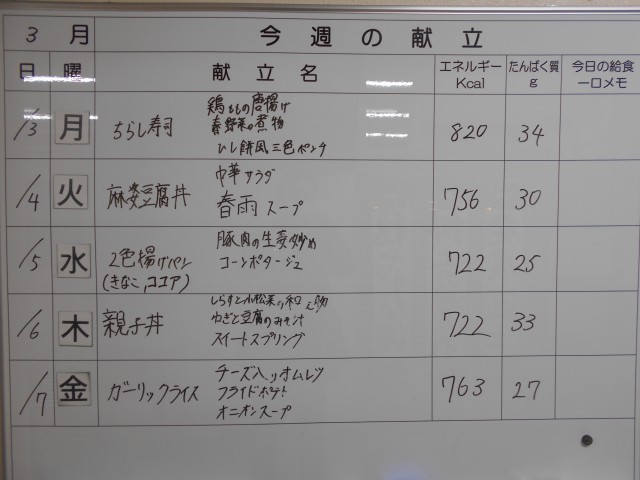 3 月 今週の献立
日 曜 献立名 エネルギー Kcal たんぱく質 g 今日の給食 一口メモ
/3 月 ちらし寿司 鶏ももの唐揚げ 820 34
春野菜の煮物
ひし餅風三色ポンチ
/4 火 麻婆豆腐丼 中華サラダ 756 30
春雨スープ
/5 水 2色揚げパン 豚肉の生姜炒め 722 25
(きなこ,ココア) コーンポタージュ
/6 木 親子丼 しらすと小松菜の和え物 722 33
ねぎと豆腐のみそ汁
スイートスプリング
/7 金 ガーリックライス チーズ入りオムレツ 763 27
フライドポテト
オニオンスープ